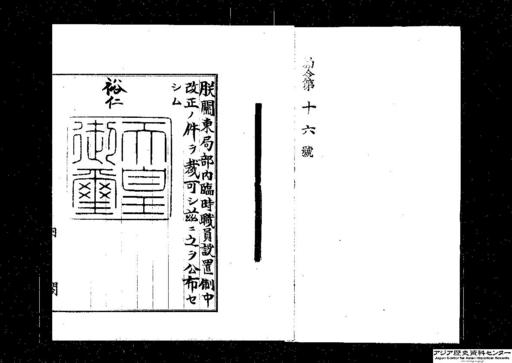 勅令第十六號
朕關東局部内臨時職員設置制中
改正ノ件ヲ裁可シ茲ニ之ヲ公布セ
シム
裕仁
天皇
御璽
内閣
アジア歴史資料センター
Japan Center for Asian Historical Records